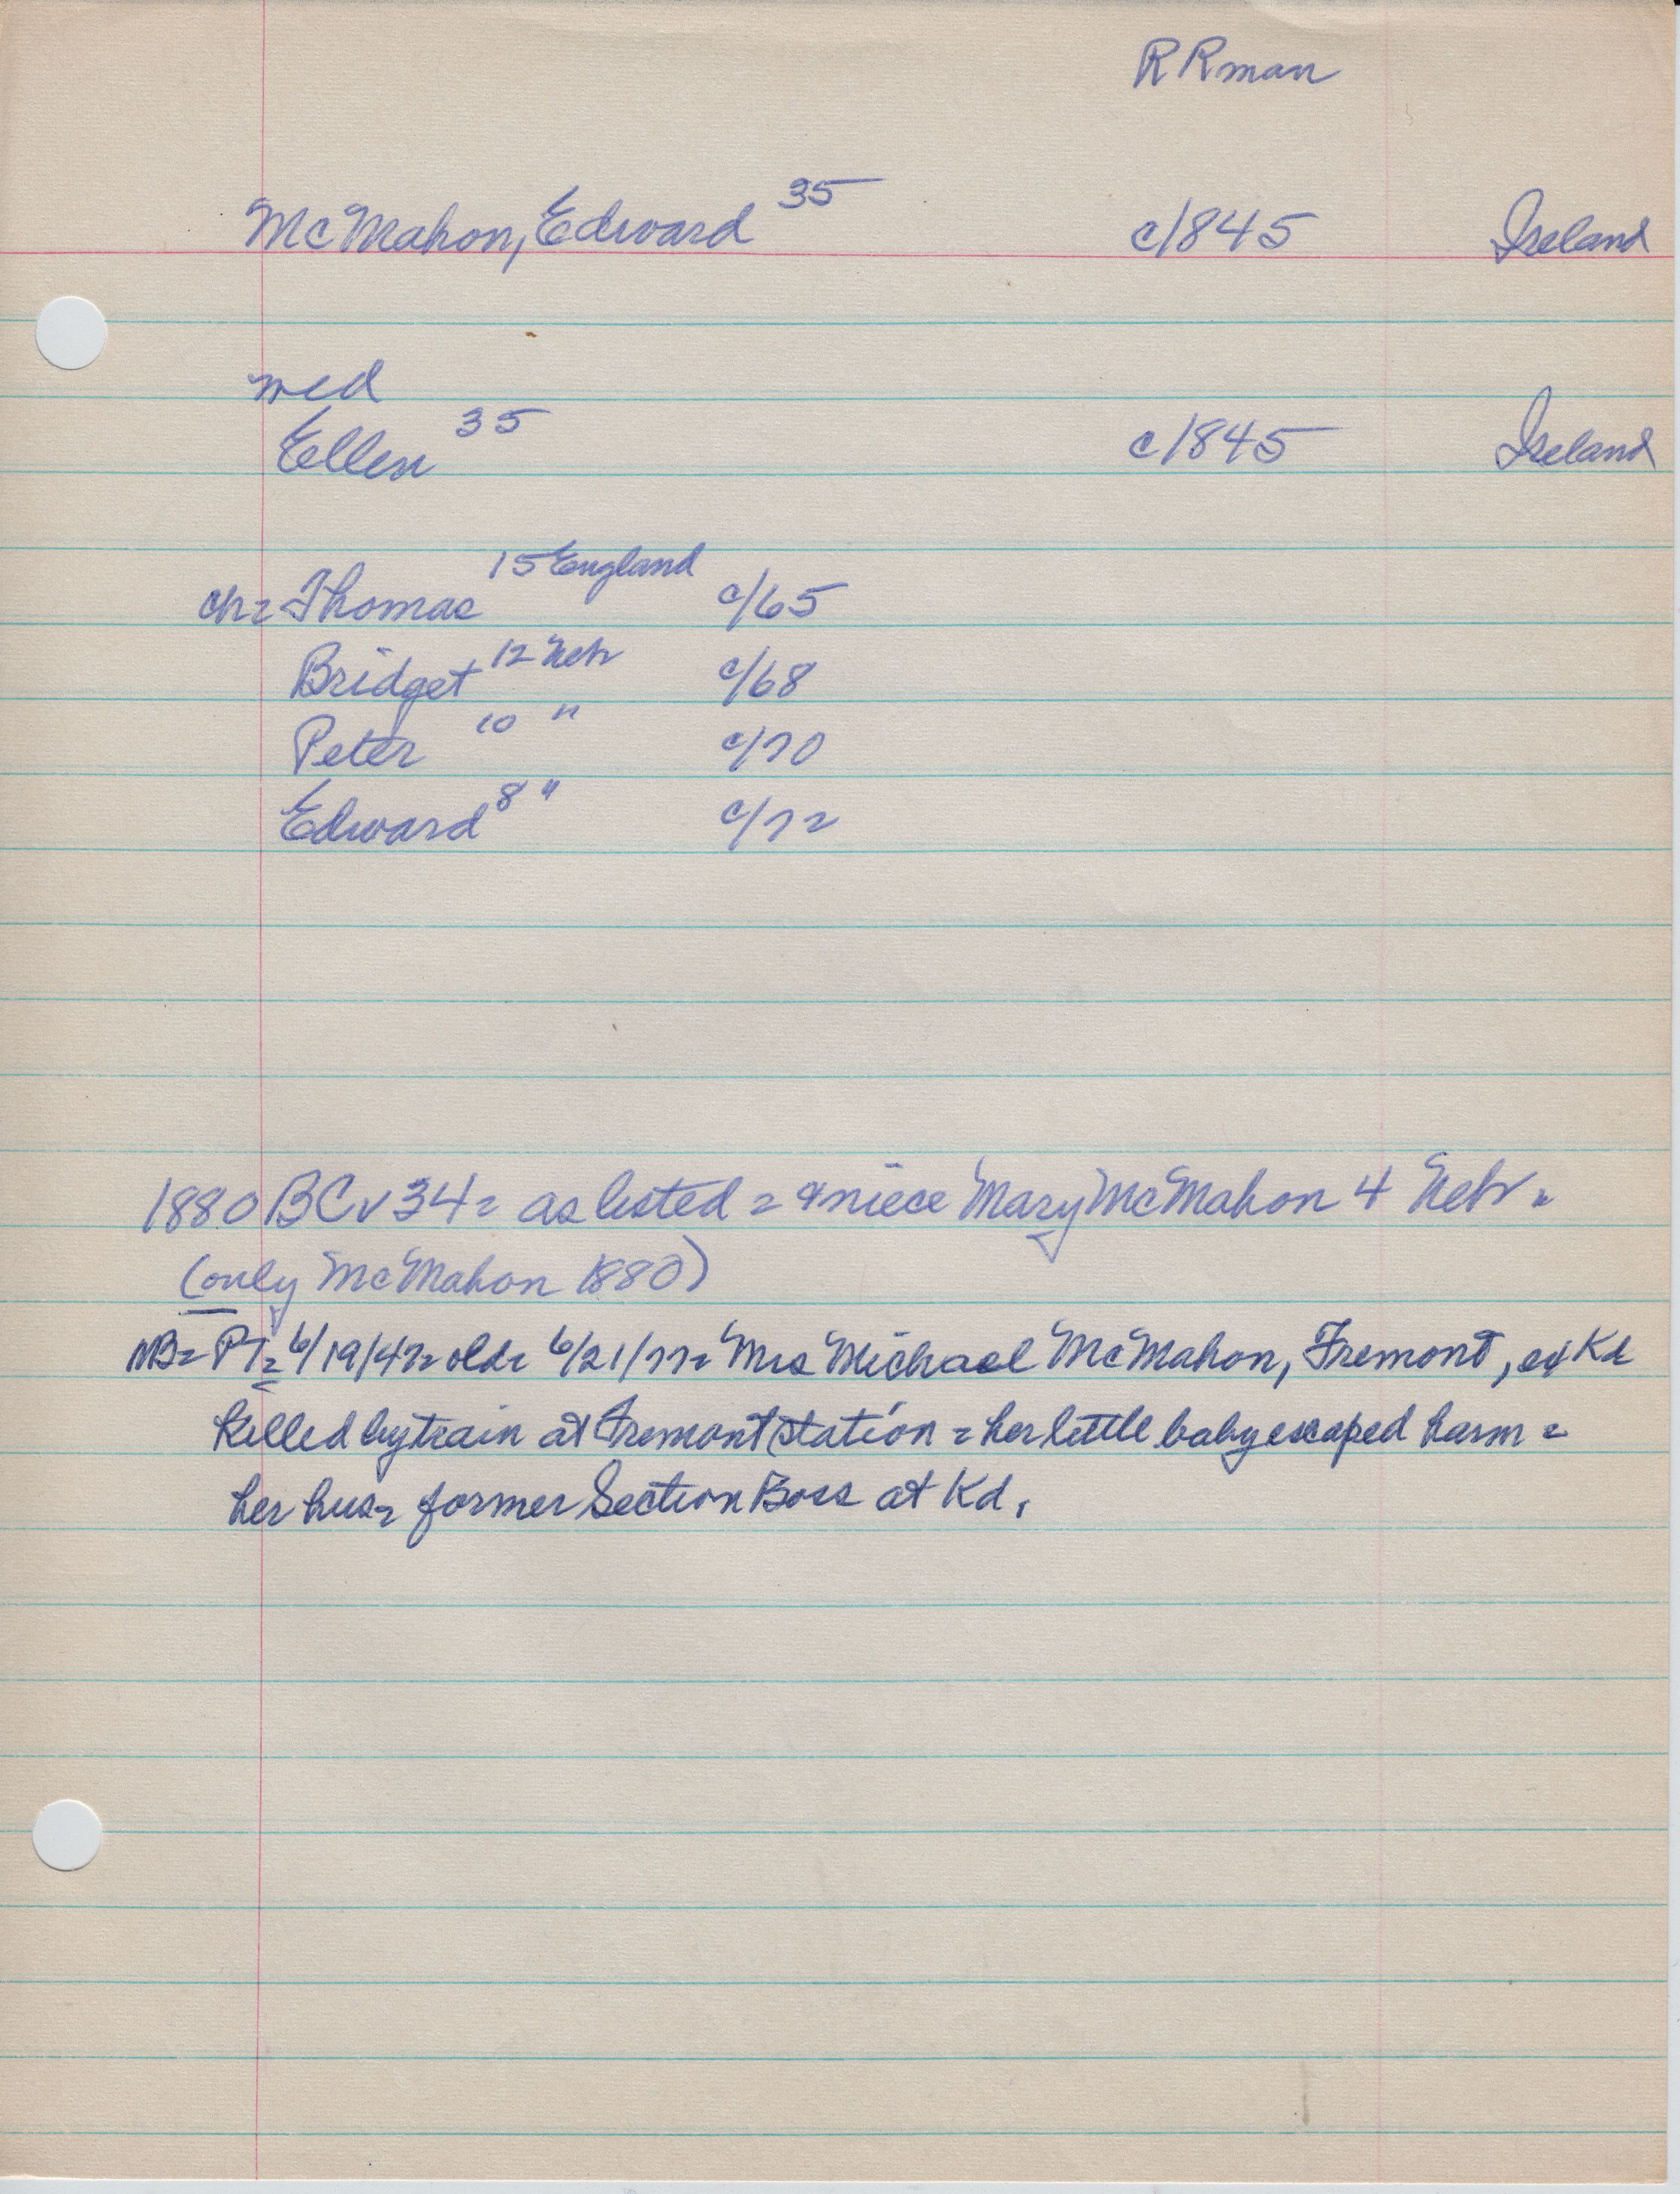 R R man
McMahon, Edward 35 c/1845 Ireland
med
Ellen 35 c/1845 Ireland
ch= Thomas 15 England c/65
Bridget 12 Nebr c/68
Peter 10 " c/70
Edward 8 " c/72
1880 BC v 34= as listed = & niece Mary McMahon 4 Nebr =
(only McMahon 1880)
NB= PT= 6/19/47= old= 6/21/77= Mrs Michael McMahon, Fremont, ex Kd
killed by train at Fremont station = her little baby escaped harm =
her hus= former Section Boss at Kd.